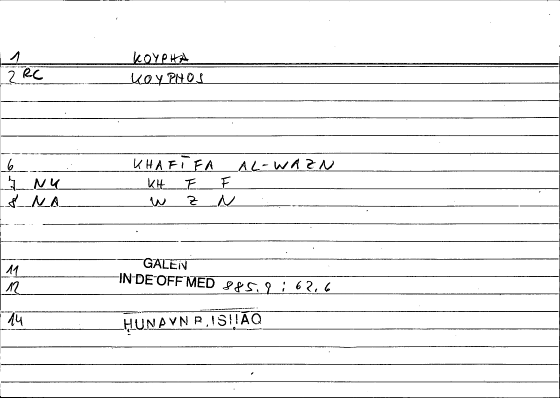 1 KOYPHA
2 RC KOYPHOS
6 KHAFĪFA AL-WAZN
7 NU KH F F
8 NA W Z N
11 GALEN
12 IN DE OFF MED 885.9 ; 62.6
14 ḤUNAYN B. ISḤĀQ